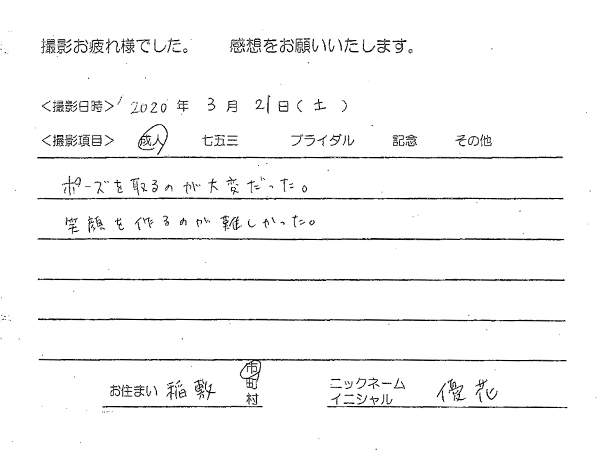 撮影お疲れ様でした。 感想をお願いいたします。
<撮影日時> 2020 年 3 月 21 日 ( 土 )
<撮影項目> 成人 七五三 ブライダル 記念 その他
ポーズを取るのが大変だった。
笑顔を作るのが難しかった。
お住まい 稲敷 市 町 村 ニックネーム イニシャル 優花